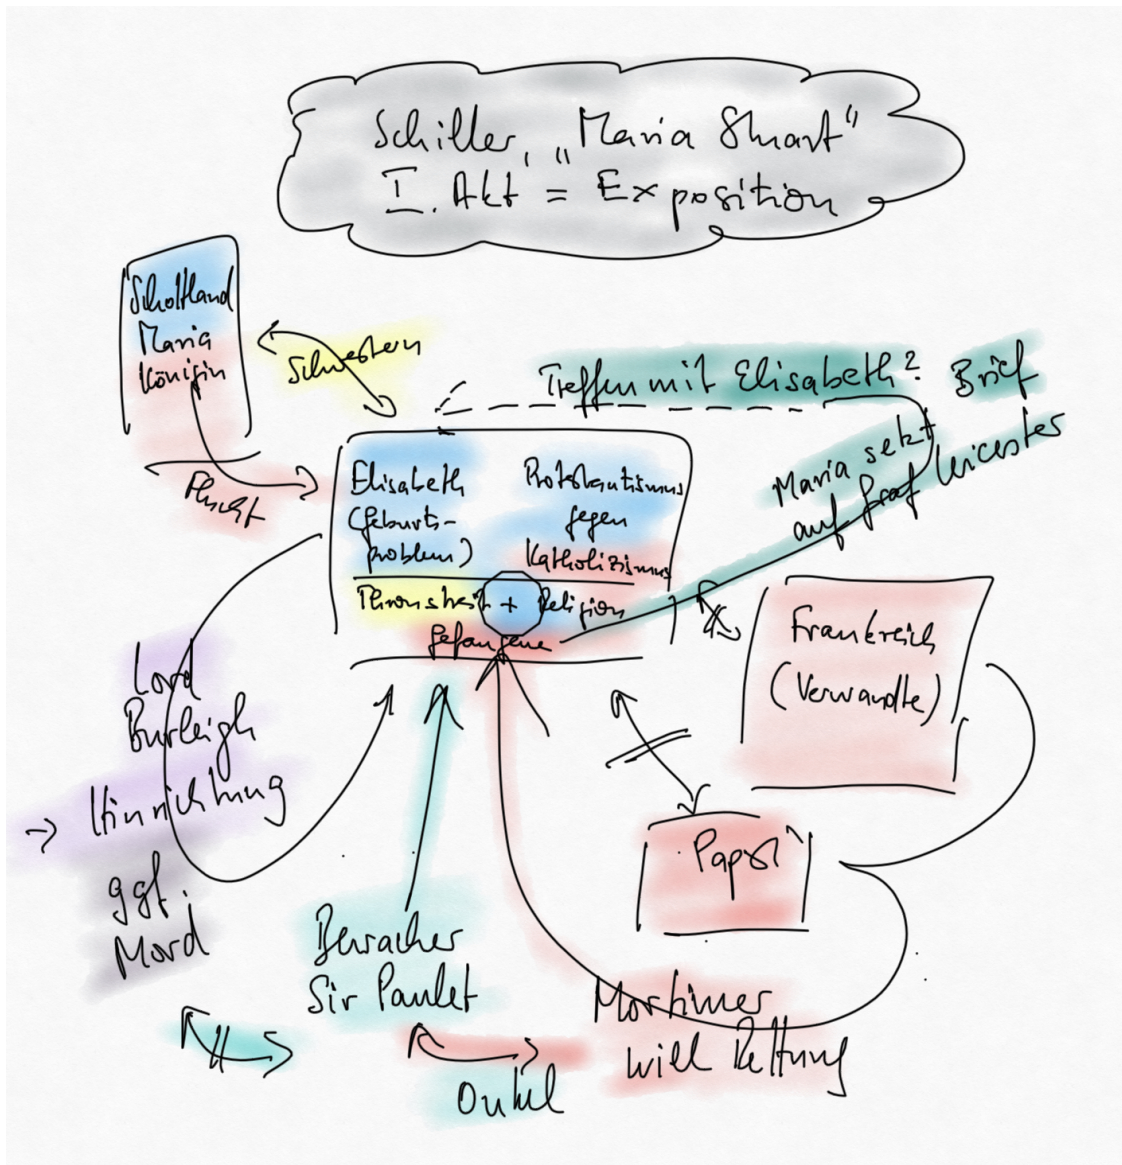 Schiller, „Maria Stuart"
I. Akt = Exposition
Schottland
Maria
Königin
Schwestern
Flucht
Treffen mit Elisabeth?
Brief
Maria setzt
auf Graf Leicester
Elisabeth
(Geburts-
problem)
Protestantismus
gegen
Katholizismus
Thronstreit + Religion
Gefangene
Frankreich
(Verwandte)
Lord
Burleigh
→ Hinrichtung
ggf.
Mord
Papst
Bewacher
Sir Paulet
Mortimer
will Rettung
Onkel